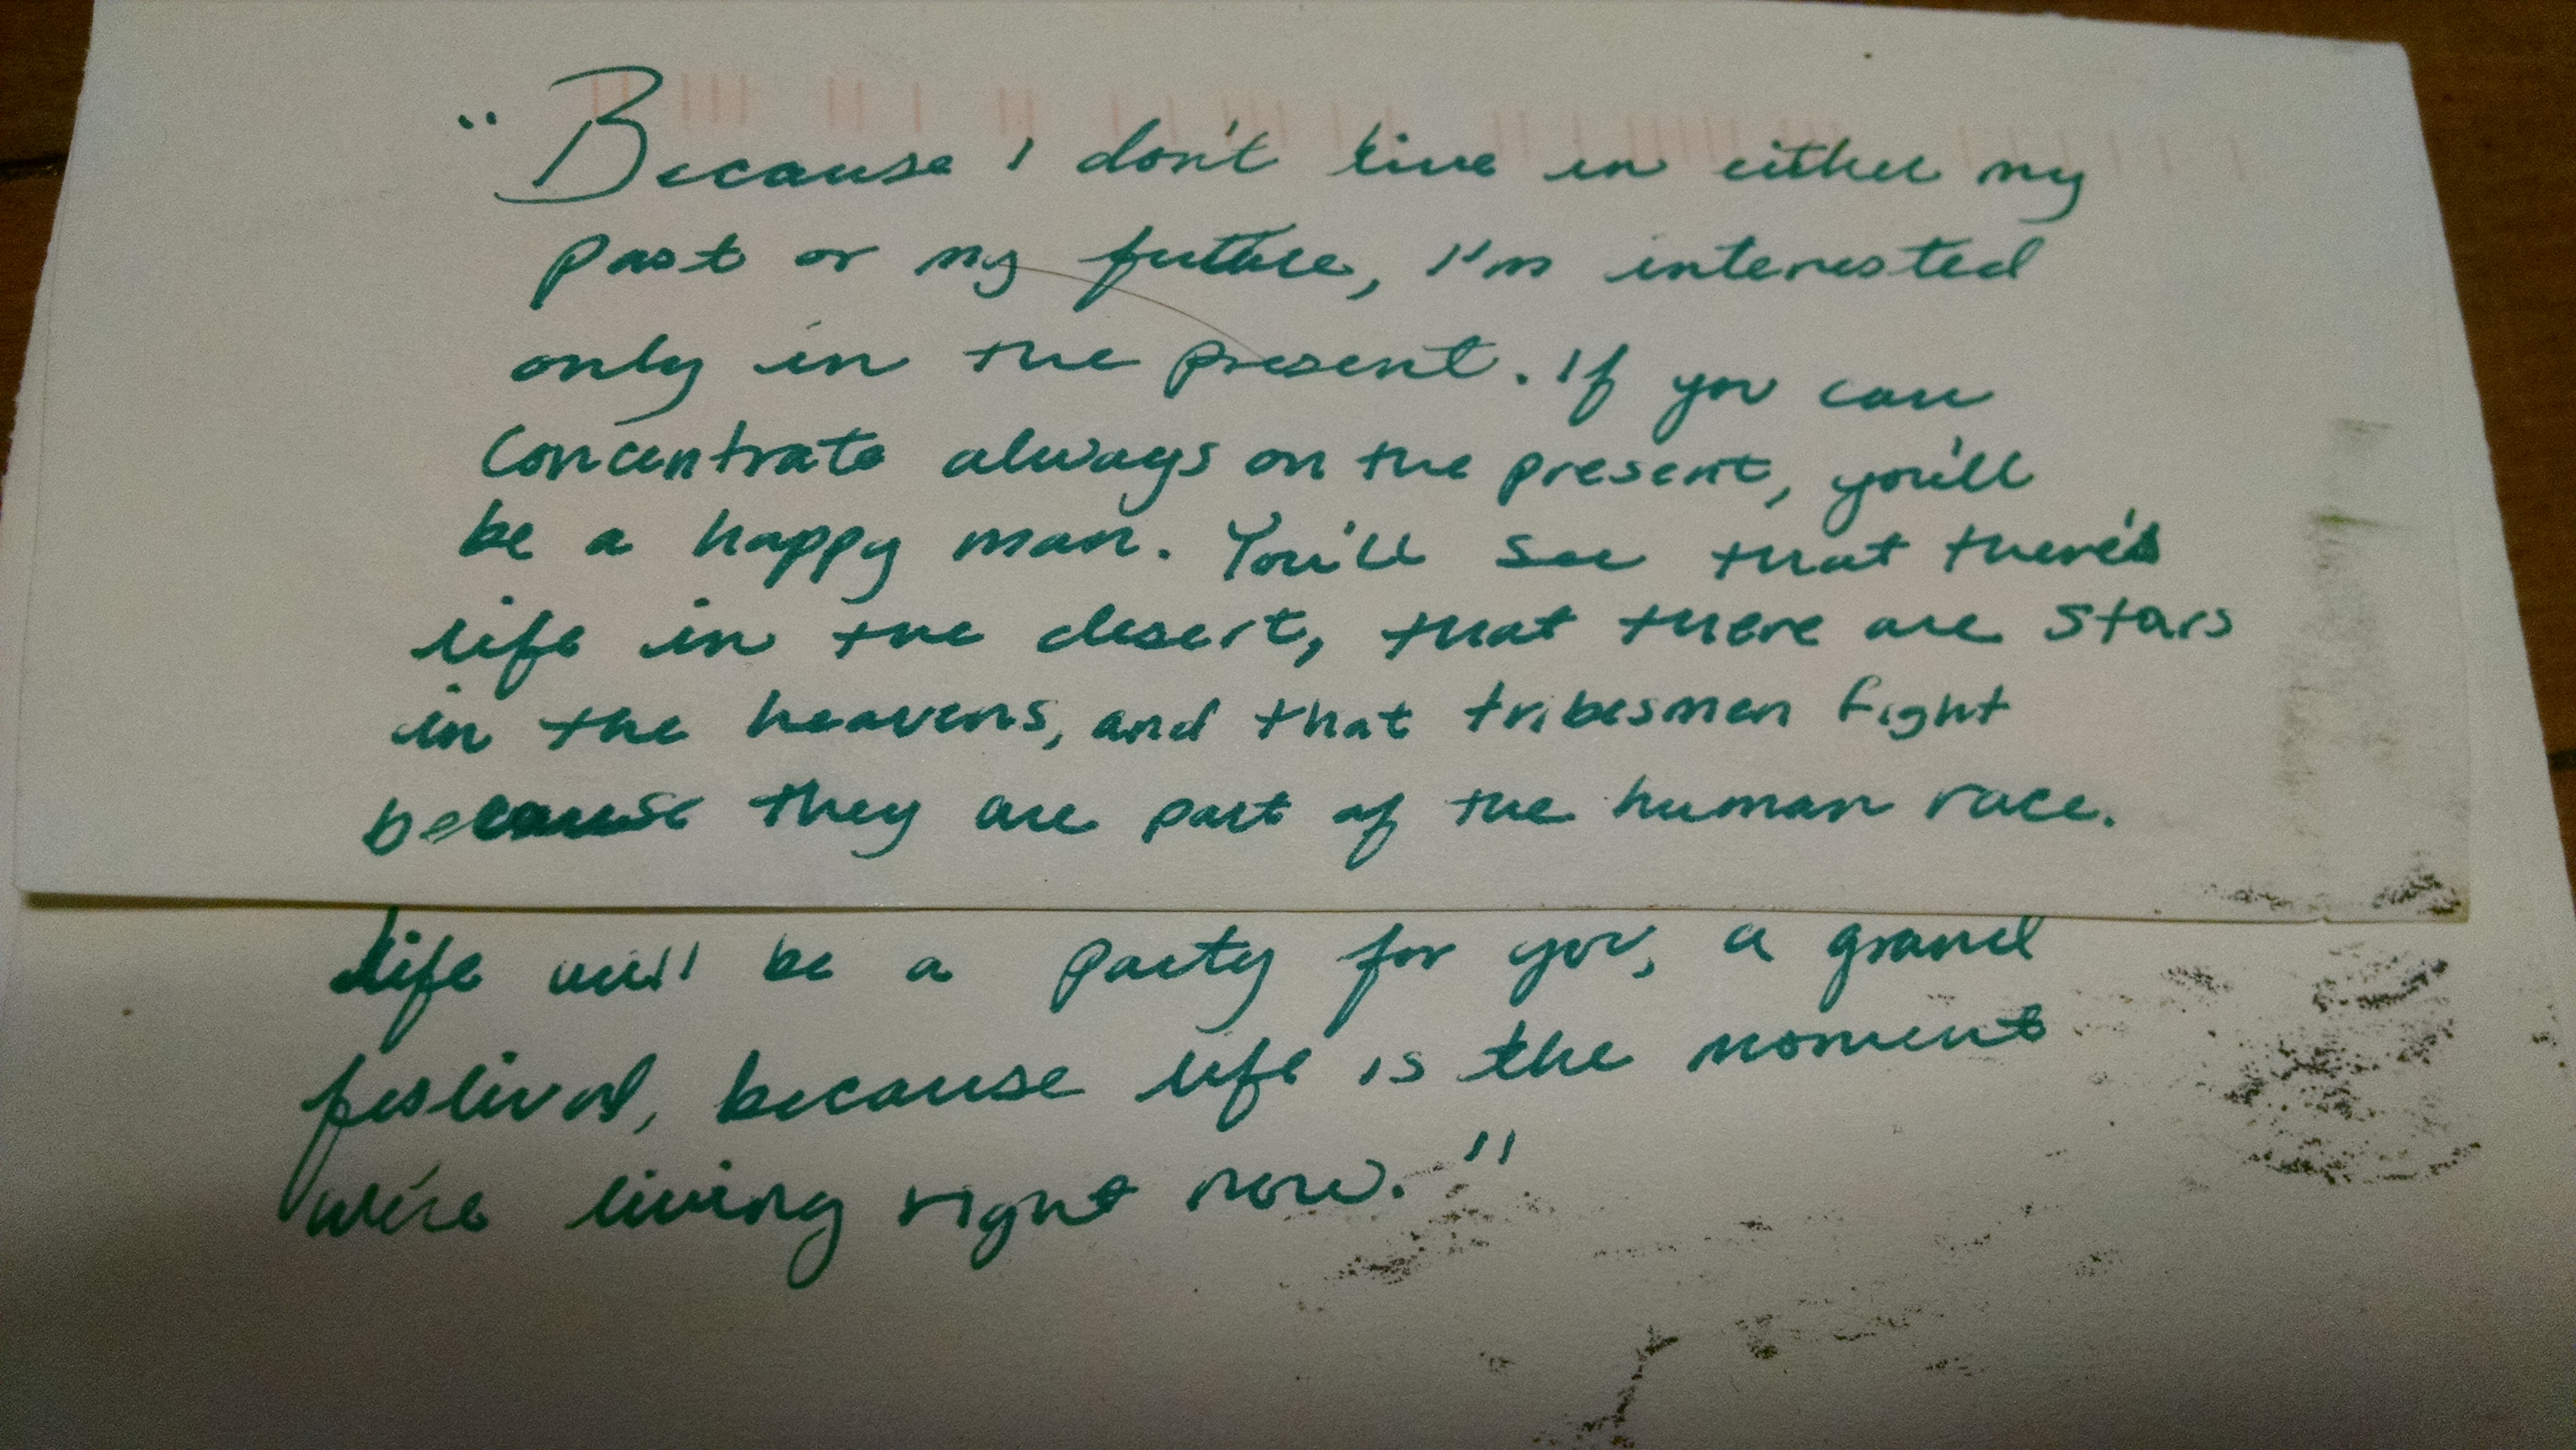 "Because I don't live in either my
past or my future, I'm interested
only in the present. If you can
concentrate always on the present, you'll
be a happy man. You'll see that there's
life in the desert, that there are stars
in the heavens, and that tribesmen fight
because they are part of the human race.
Life will be a party for you, a grand
festival, because life is the moment
we're living right now."